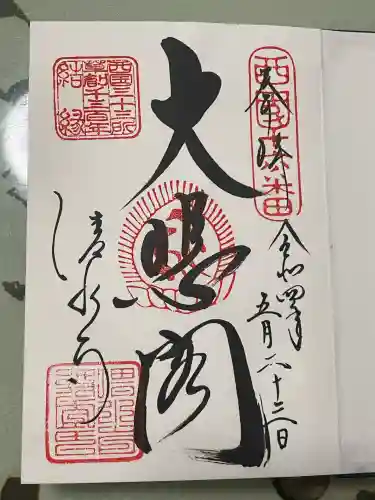 奉拝
令和四年
五月二十二日
大悲閣
清水寺
西國三十三所
結縁